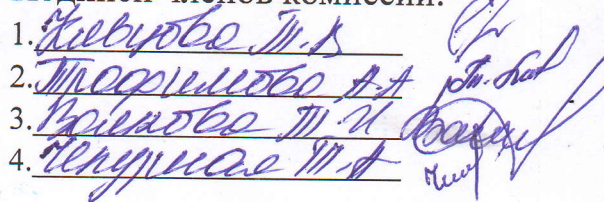 Подписи членов комиссии:
1. Клевцова Т.В
2. Трофимова А.А
3. Волкова Т.И
4. Чепурная Т.А